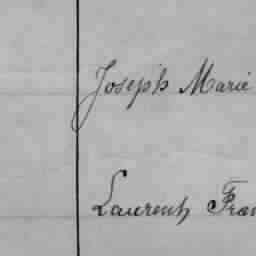 Joseph Marie
Laurent Fran